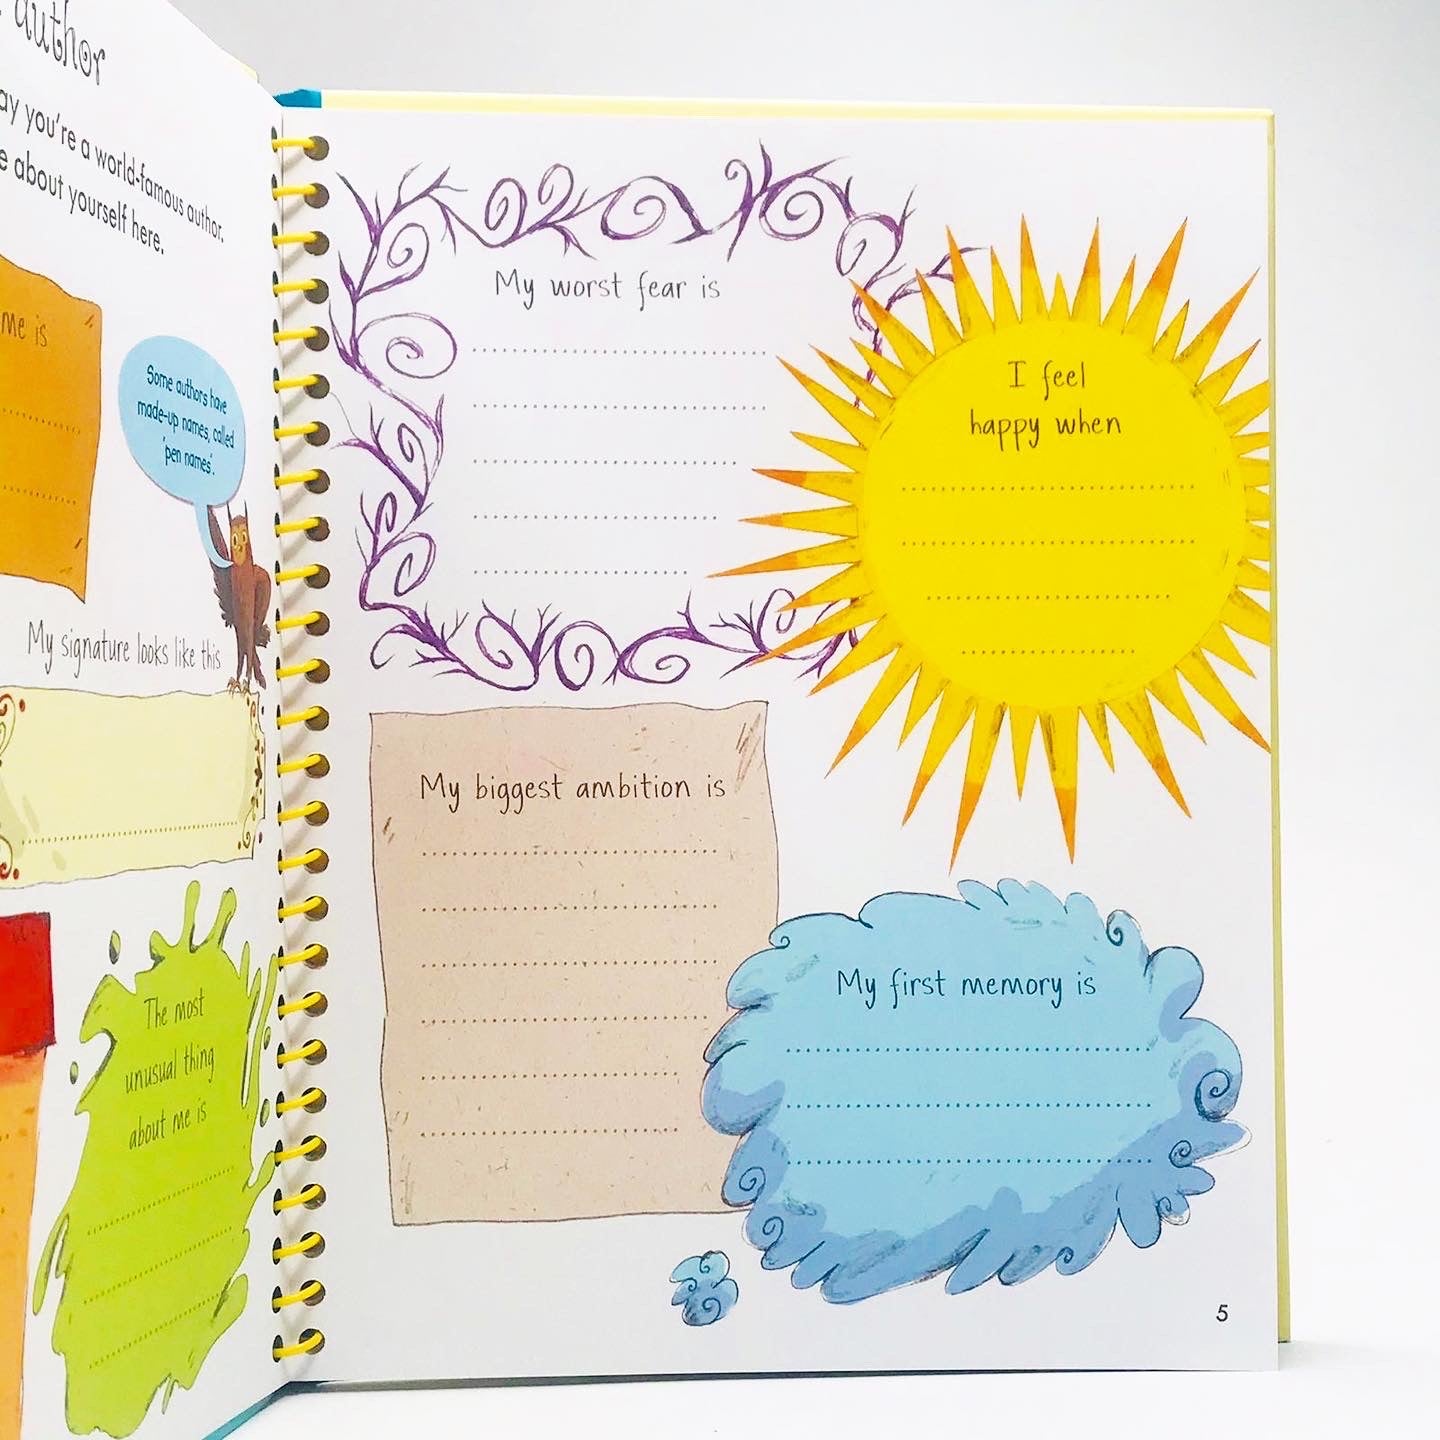 author
you're a world-famous author.
about yourself here.
me is
Some authors have
made-up names, called
'pen names'.
My signature looks like this
The most
unusual thing
about me is
My worst fear is
I feel
happy when
My biggest ambition is
My first memory is
5